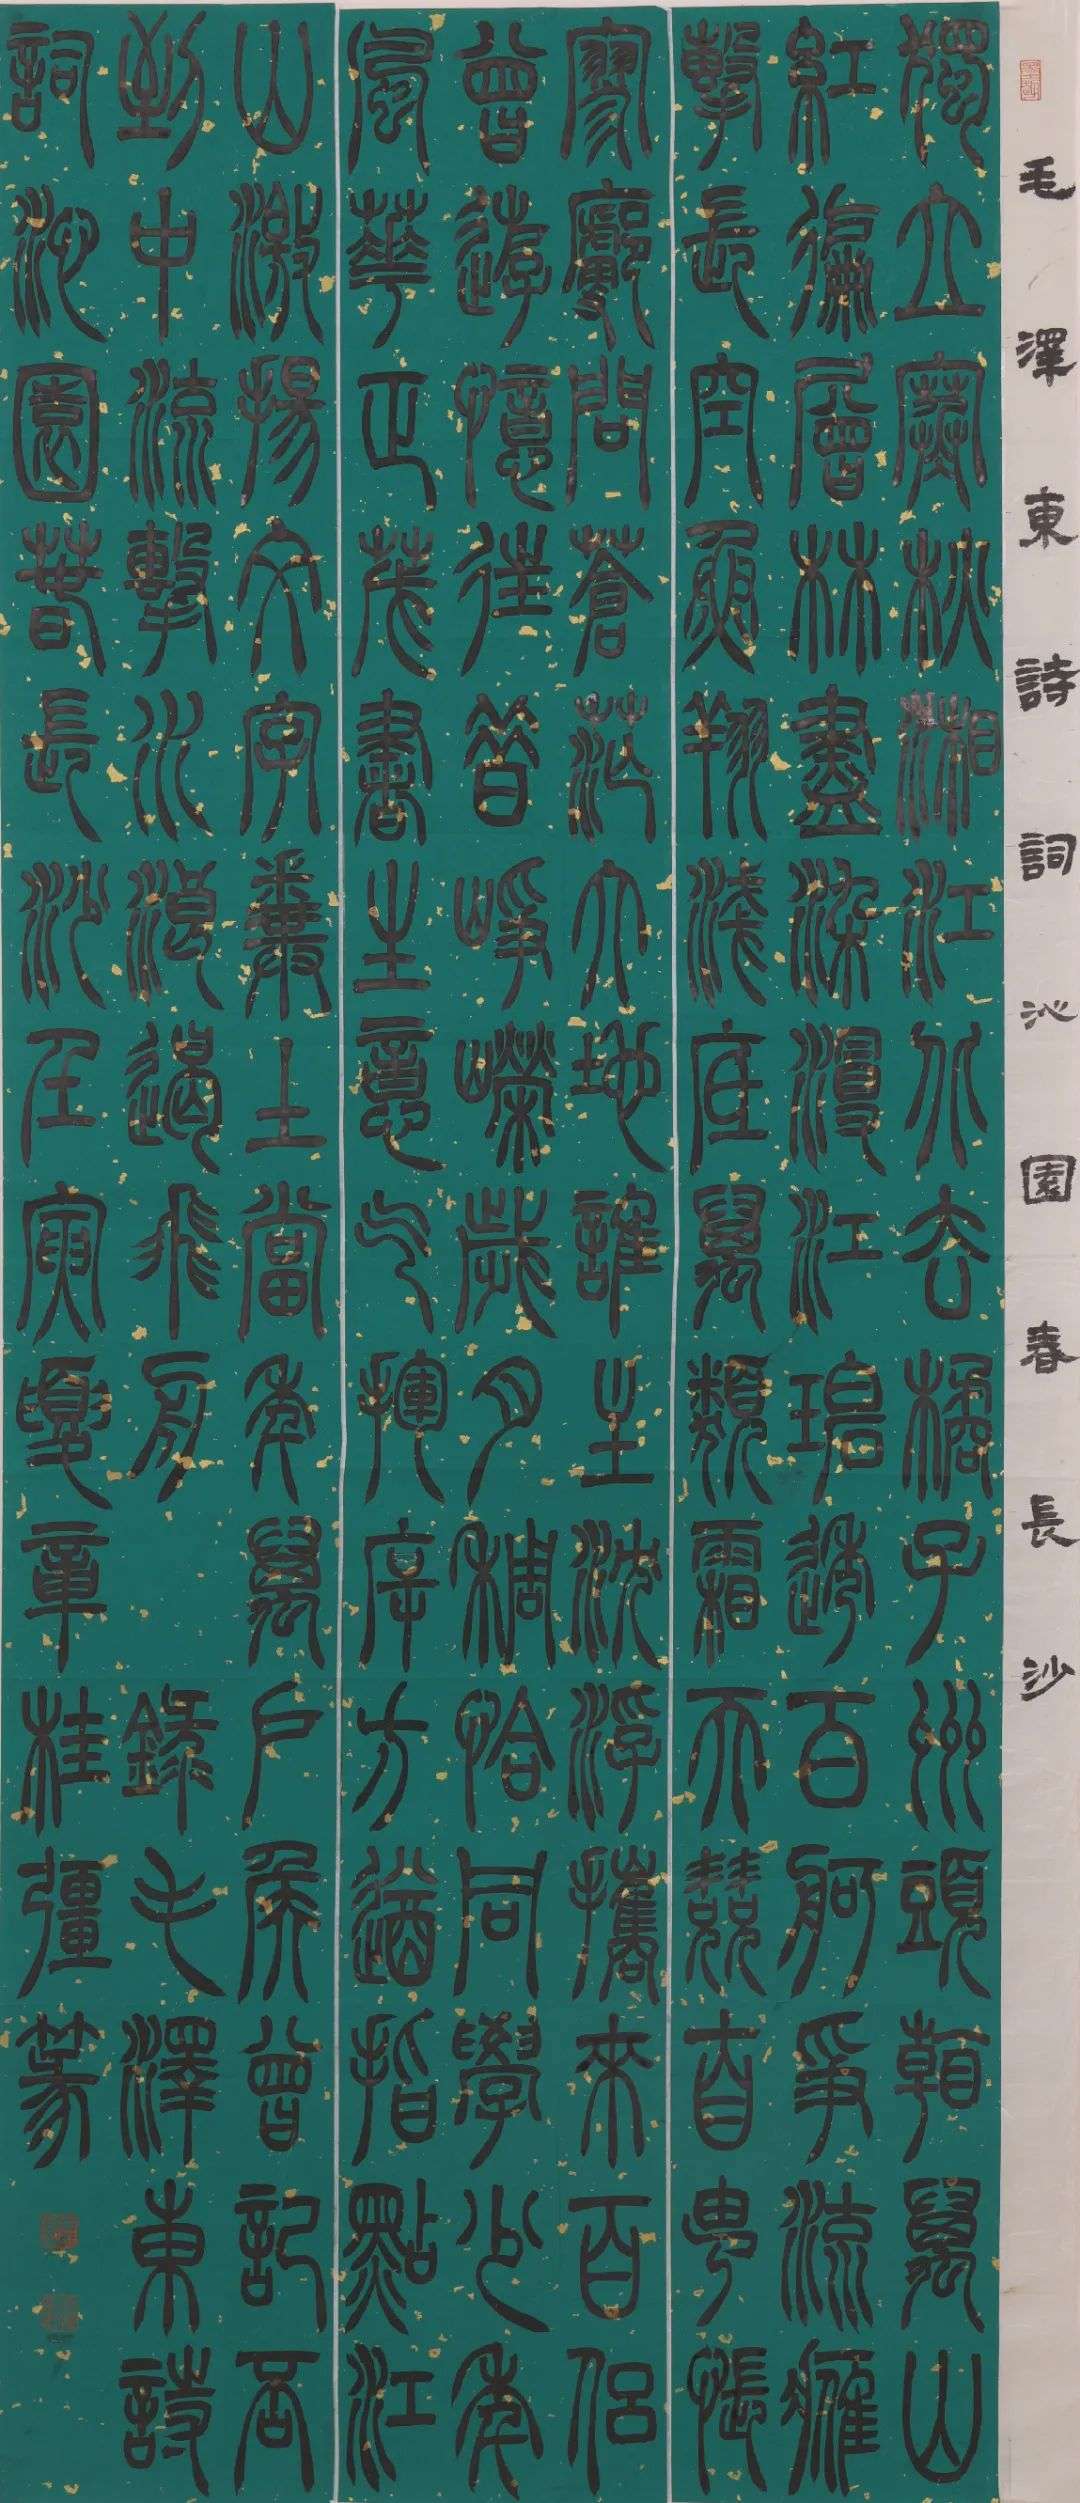 毛澤東詩詞沁園春長沙
獨立寒秋湘江北去橘子州頭看萬山
紅徧層林盡染漫江碧透百舸爭流鷹
擊長空魚翔淺底萬類霜天競自由悵
寥廓問蒼茫大地誰主沈浮攜來百侶
曾遊憶往昔崢嶸歲月稠恰同學少年
風華正茂書生意氣揮斥方遒指點江
山激揚文字糞土當年萬戶侯曾記否
到中流擊水浪遏飛舟 錄毛澤東詩
詞沁園春長沙壬寅夏章桂彊篆